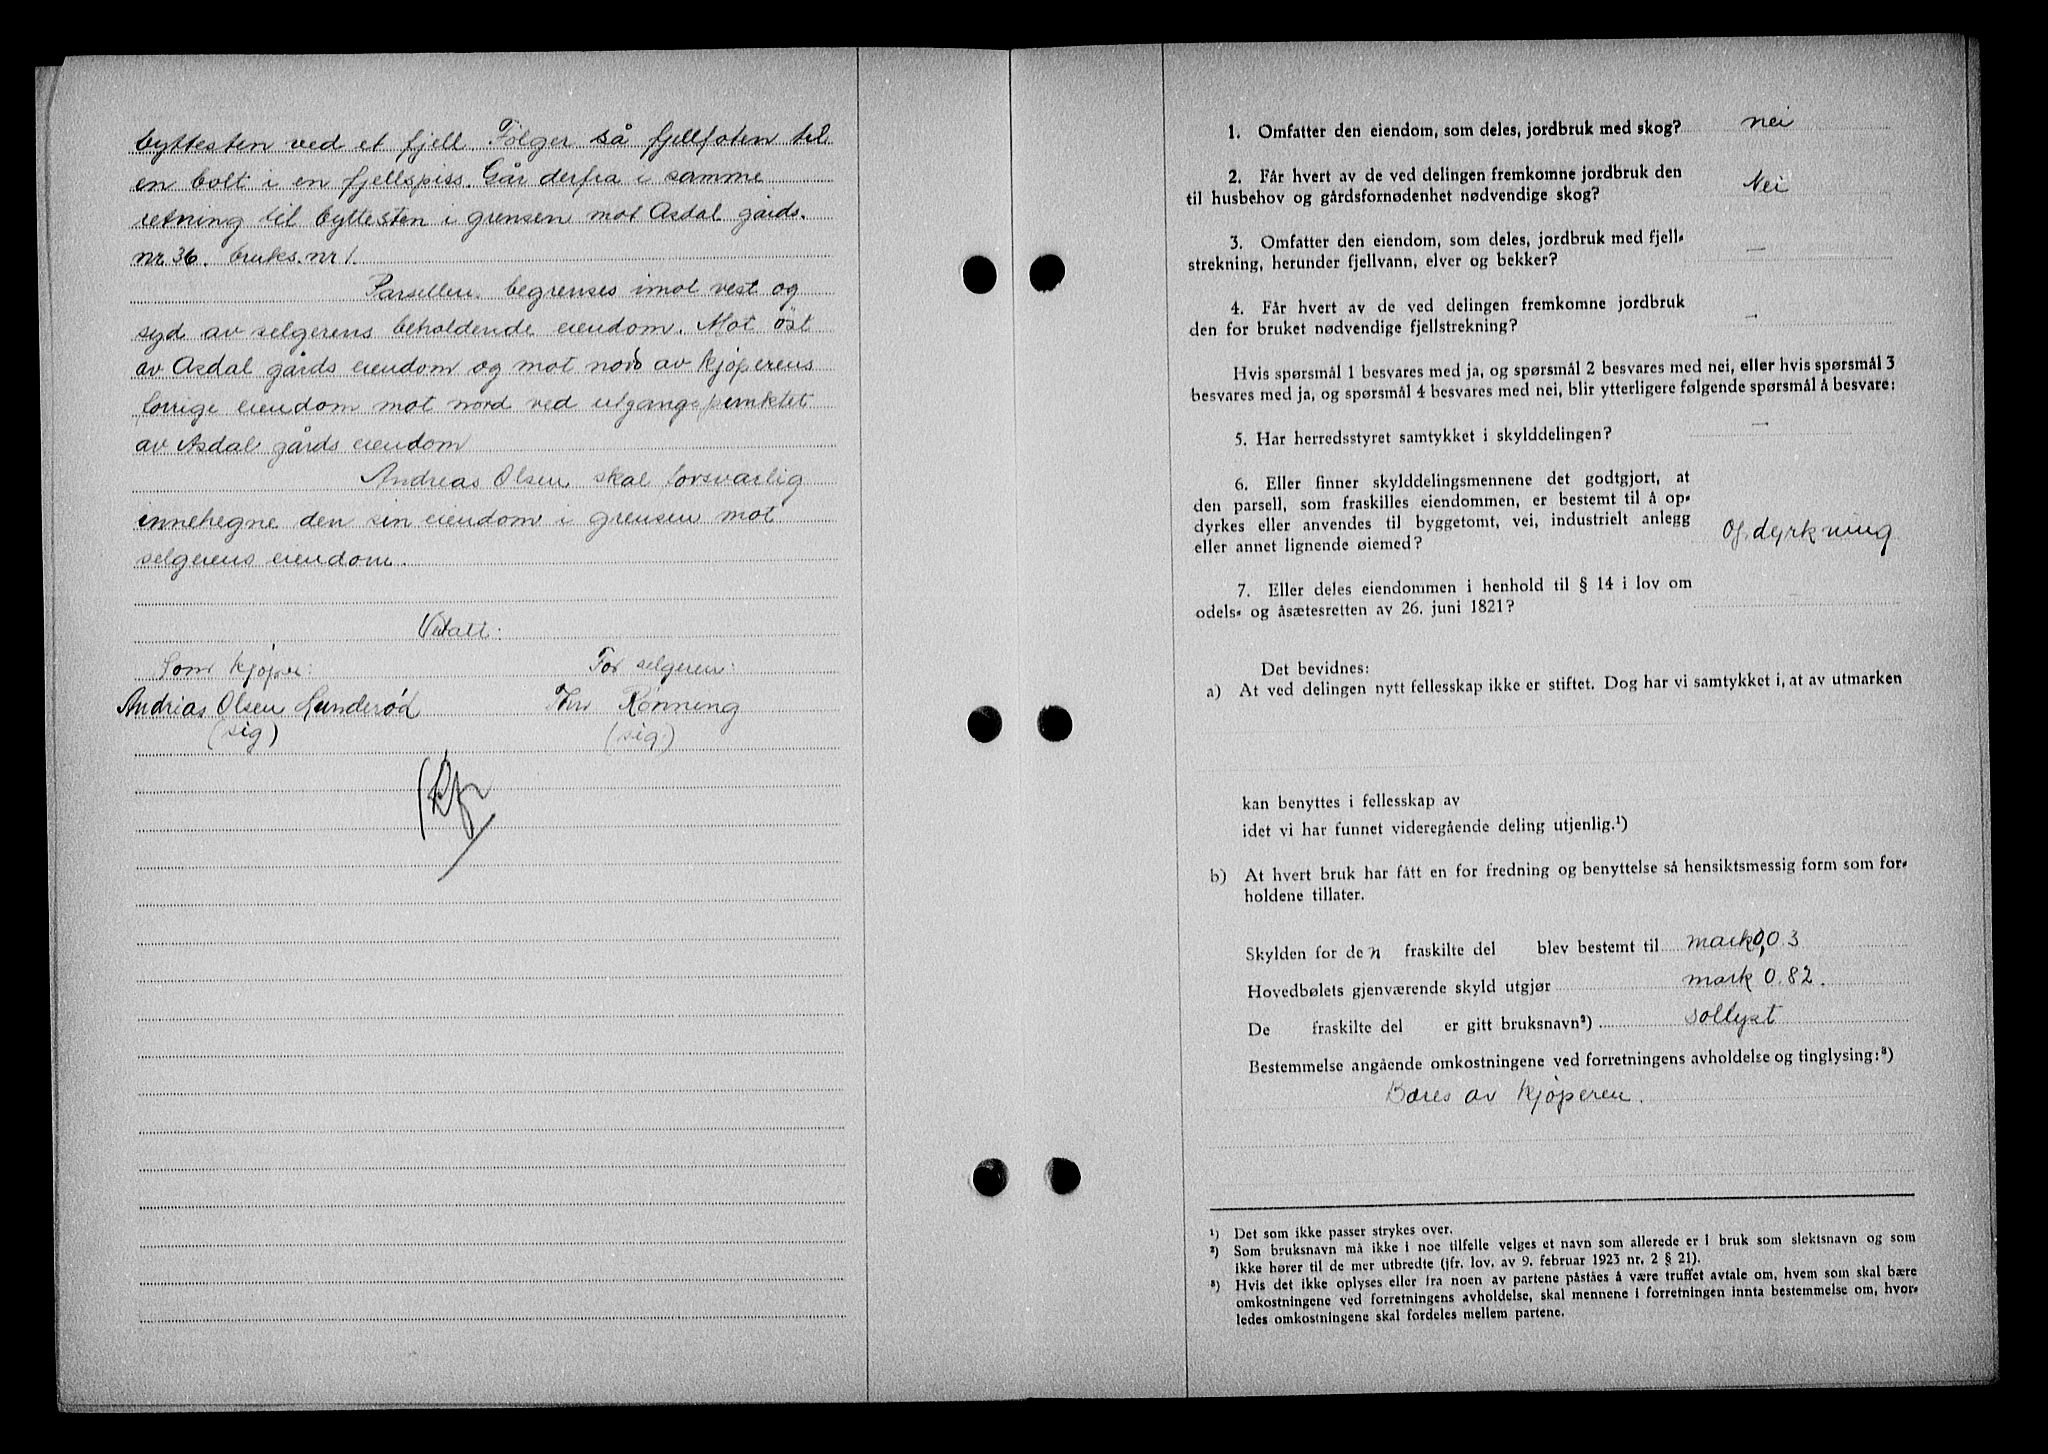 byttesten ved et fjell. Følger så fjellfoten til
en bolt i en fjellspiss. Går derfra i samme
retning til byttesten i grensen mot Asdal gårds.
nr 36. bruks. nr 1.
Parsellen begrenses imot vest og
syd av selgerens beholdende eiendom. Mot øst
av Asdal gårds eiendom og mot nord av kjøperens
forrige eiendom mot nord ved utgangspunktet
av Asdal gårds eiendom
Andreas Olsen skal forsvarlig
innehegne den sin eiendom i grensen mot
selgerens eiendom.
Vedatt:
Som kjøper:
For selgeren:
Andrias Olsen Lunderød
Rønning
(sig)
(sig.)
1. Omfatter den eiendom, som deles, jordbruk med skog? nei
2. Får hvert av de ved delingen fremkomne jordbruk den
til husbehov og gårdsfornødenhet nødvendige skog? Nei
3. Omfatter den eiendom, som deles, jordbruk med fjell-
strekning, herunder fjellvann, elver og bekker? —
4. Får hvert av de ved delingen fremkomne jordbruk
den for bruket nødvendige fjellstrekning? —
Hvis spørsmål 1 besvares med ja, og spørsmål 2 besvares med nei, eller hvis spørsmål 3
besvares med ja, og spørsmål 4 besvares med nei, blir ytterligere følgende spørsmål å besvare:
5. Har herredsstyret samtykket i skylddelingen? —
6. Eller finner skylddelingsmennene det godtgjort, at
den parsell, som fraskilles eiendommen, er bestemt til å op-
dyrkes eller anvendes til byggetomt, vei, industrielt anlegg
eller annet lignende øiemed? Opdyrkning
7. Eller deles eiendommen i henhold til § 14 i lov om
odels- og åsætesretten av 26. juni 1821? —
Det bevidnes:
a) At ved delingen nytt fellesskap ikke er stiftet. Dog har vi samtykket i, at av utmarken
kan benyttes i fellesskap av
idet vi har funnet videregående deling utjenlig.¹)
b) At hvert bruk har fått en for fredning og benyttelse så hensiktsmessig form som for-
holdene tillater.
Skylden for den fraskilte del blev bestemt til mark 0,03
Hovedbølets gjenværende skyld utgjør mark 0.82.
De fraskilte del er gitt bruksnavn²) Sollyst
Bestemmelse angående omkostningene ved forretningens avholdelse og tinglysing:³)
Bæres av kjøperen.
¹) Det som ikke passer strykes over.
²) Som bruksnavn må ikke i noe tilfelle velges et navn som allerede er i bruk som slektsnavn og som
ikke hører til de mer utbredte (jfr. lov. av 9. februar 1923 nr. 2 § 21).
³) Hvis det ikke oplyses eller fra noen av partene påstås å være truffet avtale om, hvem som skal bære
omkostningene ved forretningens avholdelse, skal mennene i forretningen innta bestemmelse om, hvor-
ledes omkostningene skal fordeles mellem partene.